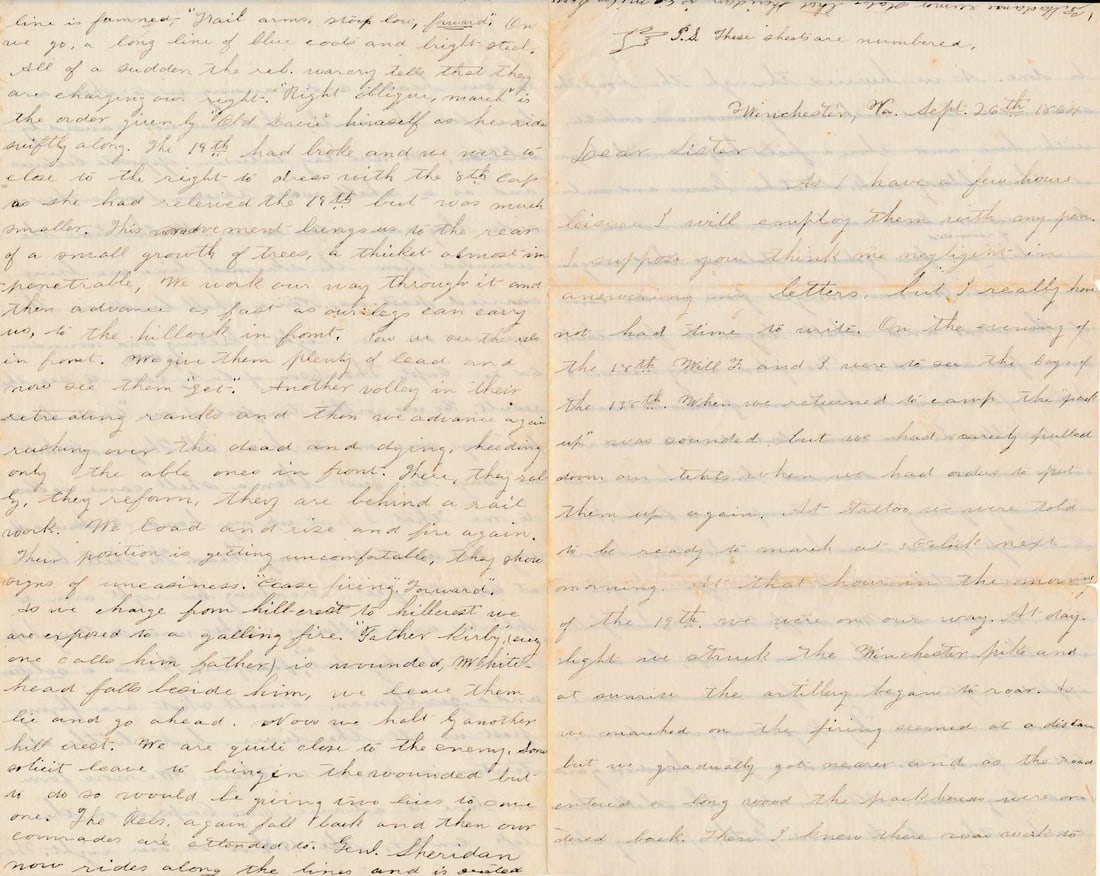 line is formed, "Trail arms, stoop low, forward". On
we go, a long line of blue coats and bright steel.
All of a sudden the reb. warcry tells that they
are charging our right. "Right oblique, march" is
the order given by "Old" himself as he rides
swiftly along. The 19th had broke and we were to
close to the right to dress with the 8th Corp
as she had relieved the 19th but was much
smaller. This movement brings us to the rear
of a small growth of trees, a thicket almost im
-penetrable, We work our way through it and
then advance as fast as our legs can carry
us, to the hillock in front. Now we see the rebs
in front. We give them plenty of lead and
now see them "get". Another volley in their
retreating ranks and then we advance again
rushing over the dead and dying, heeding
only the able ones in front. There, they ral
ly, they reform, they are behind a rail
work. We load and rise and fire again.
Their position is getting uncomfortable, they show
signs of uneasiness. "Cease firing", "Forward".
As we charge from hillcrest to hillcrest we
are exposed to a galling fire. "Father Kirby, (every
one calls him father) is wounded, White-
head falls beside him, we leave them
lie and go ahead. Now we halt by another
hill crest. We are quite close to the enemy. Some
solicit leave to bring in the wounded but
to do so would be giving two lives to save
one. The Rebs. again fall back and then our
comrades are attended to. Genl. Sheridan
now rides along the lines and is
P.S. These sheets are numbered.
Winchester, Va. Sept. 26th 1864
Dear Sister
As I have a few hours
leisure I will employ them with my pen.
I suppose you think me negligent in
answering my letters. but I really have
not had time to write. On the evening of
the 18th Will F. and I were to see the boys of
the 138th. When we returned to camp the "pack
up" was sounded but we had scarcely pulled
down our tents when we had orders to put
them up again. At Tattoo we were told
to be ready to march at o'clock next
morning. At that hour in the morning
of the 19th. we were on our way. At day-
light we struck the Winchester pike and
at sunrise the artillery began to roar. As
we marched on the firing seemed at a distance
but we gradually got nearer and as the road
entered a long wood the packhorses were or-
dered back. Then I knew there was work to